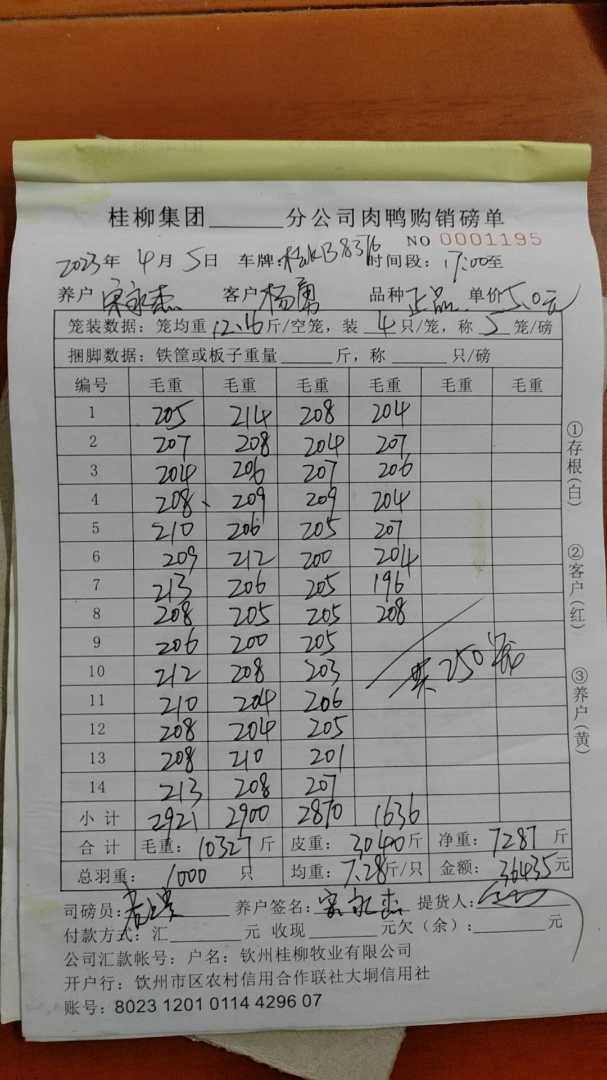 桂柳集团______分公司肉鸭购销磅单
NO 0001195
2023年 4月 5日 车牌: 时间段: 17:00至
养户 宋永杰 客户 杨勇 品种 正品 单价 5.0元
笼装数据: 笼均重 12.16 斤/空笼, 装 4 只/笼, 称 5 笼/磅
捆脚数据: 铁筐或板子重量______斤, 称______只/磅
编号 毛重 毛重 毛重 毛重 毛重 毛重
1 205 214 208 204
2 207 208 204 207
3 204 206 207 206
4 208 209 209 204
5 210 206 205 207
6 209 212 200 204
7 213 206 205 196
8 208 205 205 208
9 206 200 205
10 212 208 203
共250笼
11 210 204 206
12 208 204 205
13 208 210 201
14 213 208 207
小计 2921 2900 2870 1636
合计 毛重: 10327 斤 皮重: 3040 斤 净重: 7287 斤
总羽重: 1000 只 均重: 7.28 斤/只 金额: 36435 元
司磅员: 养户签名: 宋永杰 提货人:
付款方式: 汇______元 收现______元欠(余):______元
公司汇款帐号: 户名: 钦州桂柳牧业有限公司
开户行: 钦州市区农村信用合作联社大垌信用社
账号: 8023 1201 0114 4296 07
①存根(白)
②客户(红)
③养户(黄)